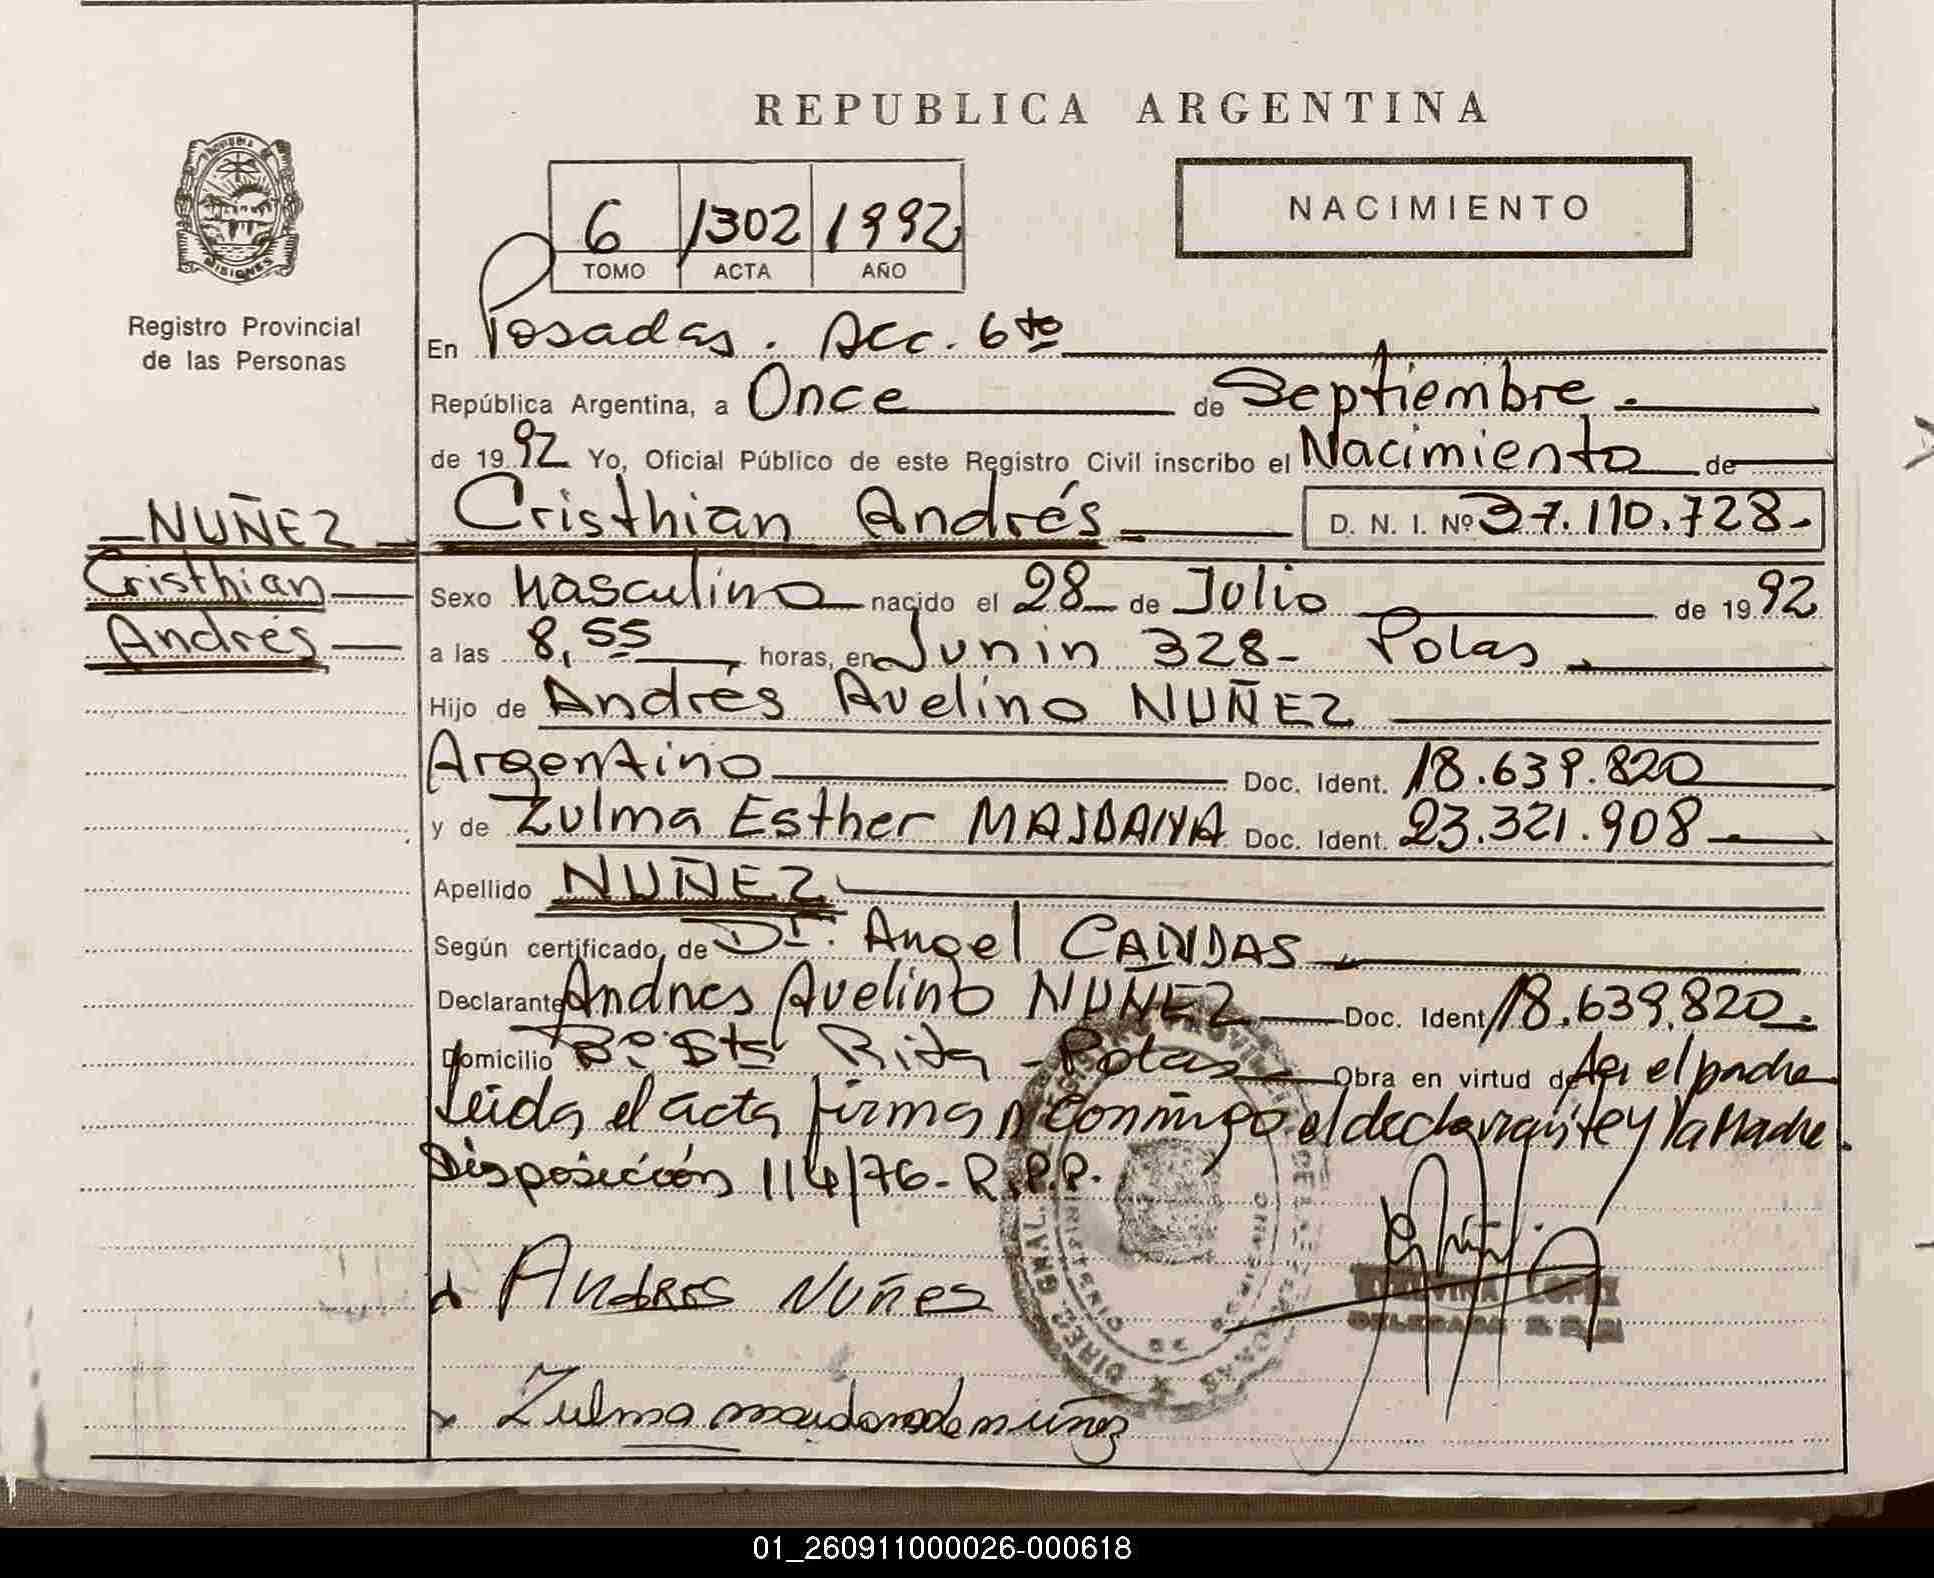 REPUBLICA ARGENTINA
NACIMIENTO
6 1302 1992
TOMO ACTA AÑO
MISIONES
Registro Provincial
de las Personas
En Posadas. Secc. 6to
República Argentina, a Once de Septiembre.
de 1992 Yo, Oficial Público de este Registro Civil inscribo el Nacimiento de
NUÑEZ
Cristhian
Andrés
Cristhian Andrés D. N. I. Nº 37.110.728-
Sexo Masculino nacido el 28 de Julio de 1992
a las 8,55 horas, en Junin 328- Pdas
Hijo de Andrés Avelino NUÑEZ
Argentino Doc. Ident. 18.639.820
y de Zulma Esther MAIDANA Doc. Ident. 23.321.908
Apellido NUÑEZ
Según certificado de Dr. Angel CANDAS
Declarante Andres Avelino NUÑEZ Doc. Ident. 18.639.820.
Domicilio Bº Sta Rita - Pdas Obra en virtud de Ser el padre
Leida el acta firman conmigo el declarante y la Madre.
Disposición 114/76- R.P.P.
Andres Nuñes
LOPEZ
DELEGADA R.P.P.
Zulma maidana de nuñez
01_260911000026-000618